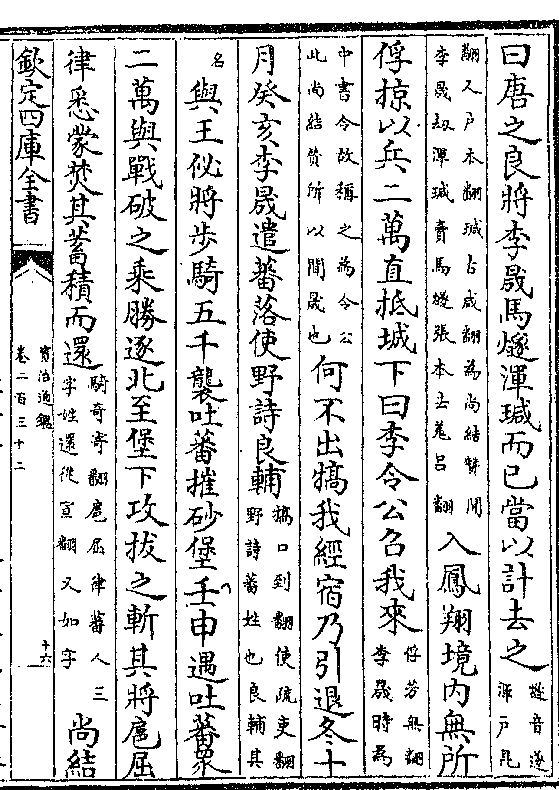 曰唐之良將李晟馬燧渾瑊而已當以計去之燧音遂渾戶昆
翻又戶本翻瑊古咸翻為尚結贊間李晟劫渾瑊賣馬燧張本去羌呂翻入鳳翔境内無所
俘掠以兵二萬直抵城下曰李令公召我來俘芳無翻李晟時為
中書令故稱之為令公此尚結贊所以間晟也何不出犒我經宿乃引退冬十
月癸亥李晟遣蕃落使野詩良輔犒口到翻使疏吏翻野詩蕃姓也良輔其
名與王佖將步騎五千襲吐蕃摧砂堡壬申遇吐蕃衆
二萬與戰破之乘勝逐北至堡下攻拔之斬其將扈屈
律悉蒙焚其蓄積而還騎奇寄翻扈屈律蕃人三字姓還從宣翻又如字尚結
欽定四庫全書
資治通鑑
卷二百三十二
十六